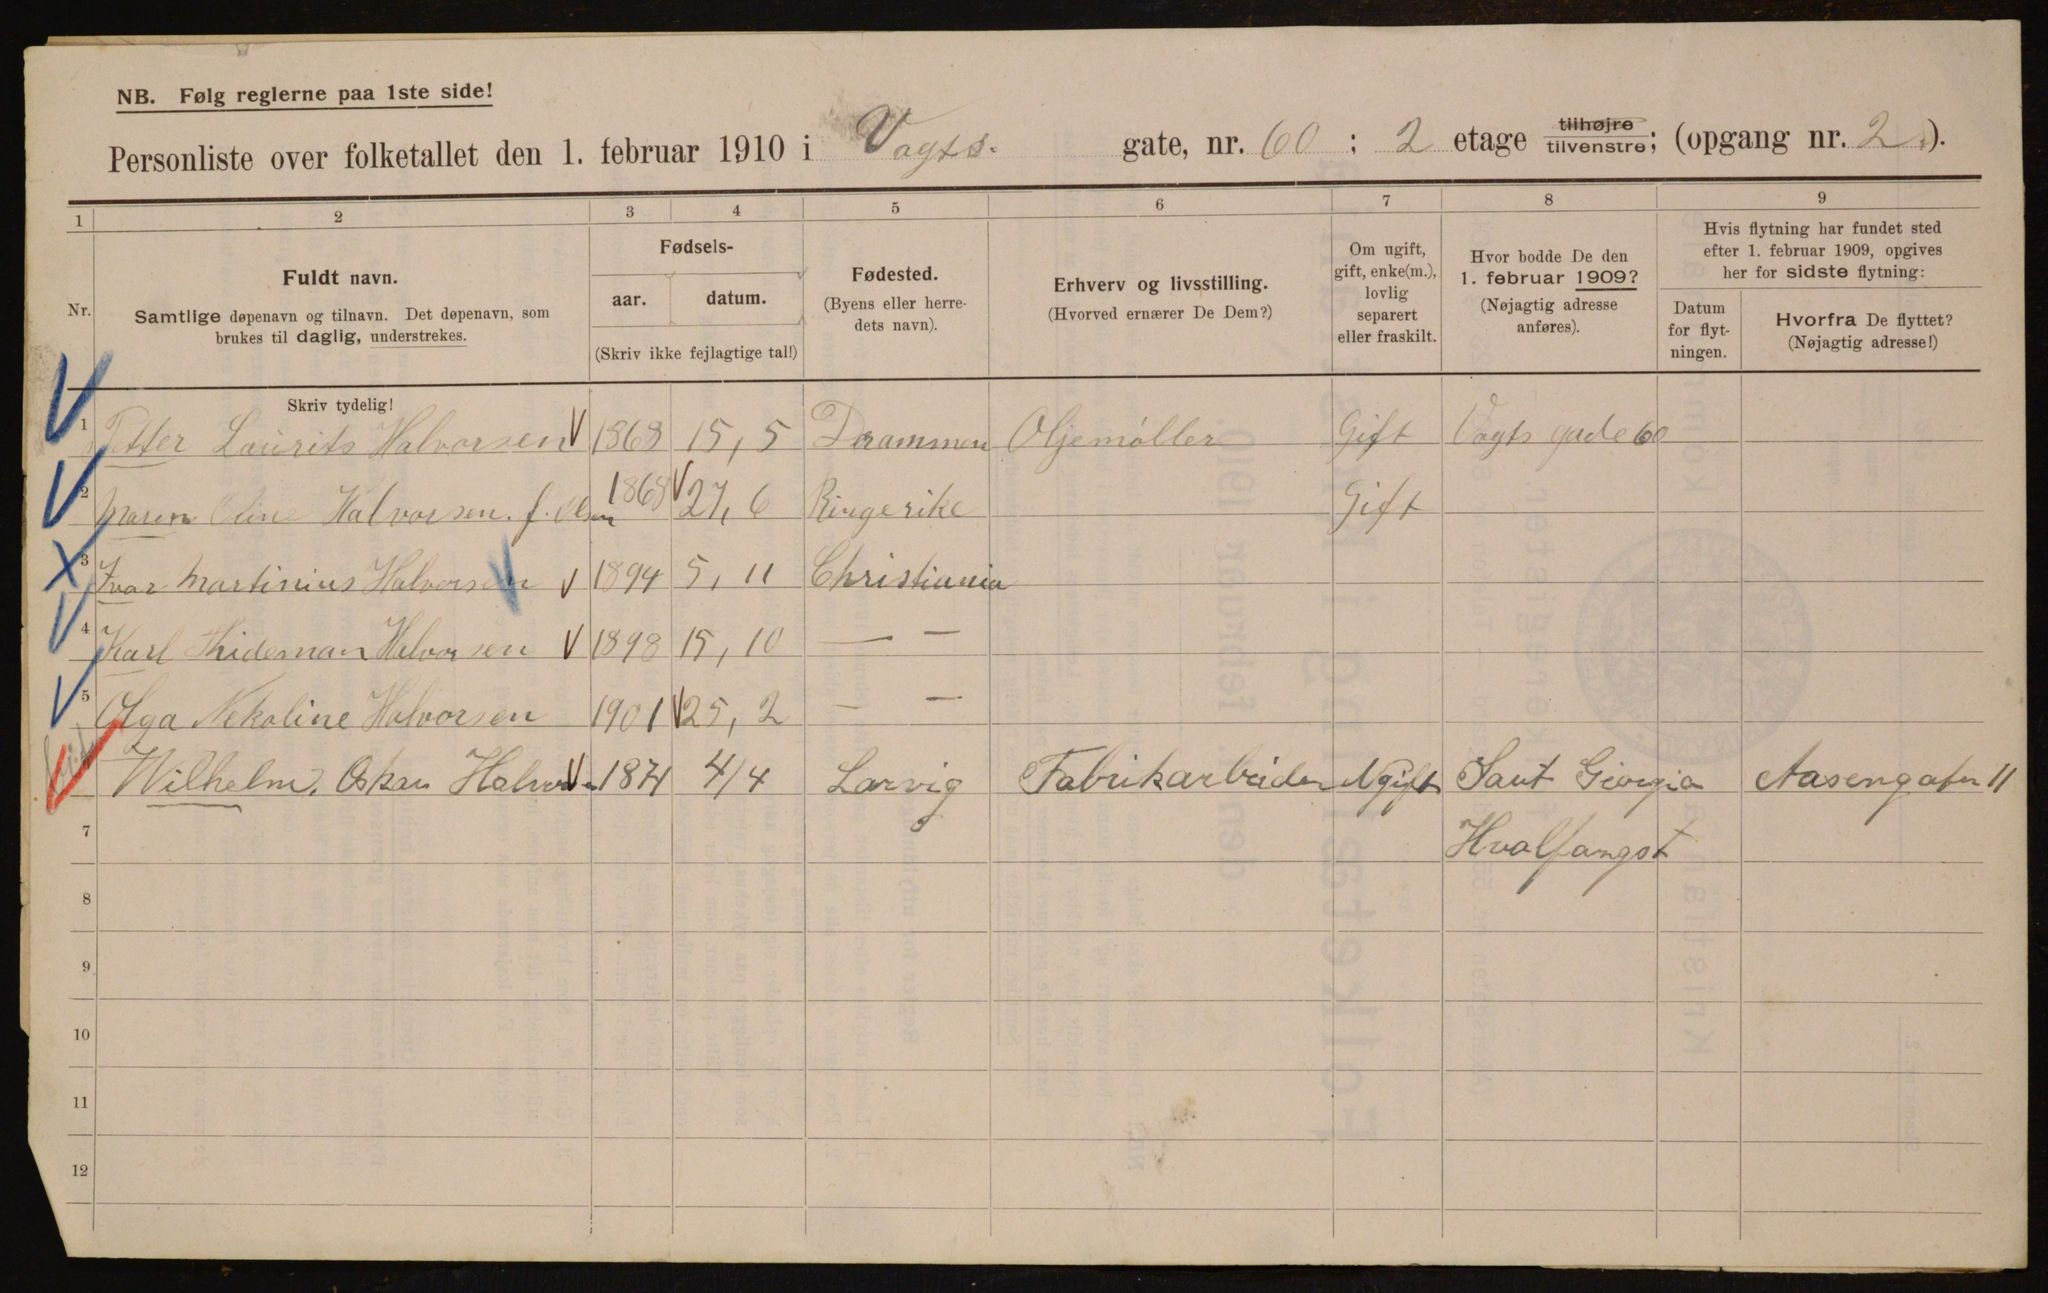 NB. Følg reglerne paa 1ste side!
Personliste over folketallet den 1. februar 1910 i Vogts. gate, nr. 60 ; 2 etage tilhøjre tilvenstre; (opgang nr. 2.).
1 2 3 4 5 6 7 8 9
Nr. Fuldt navn. Samtlige døpenavn og tilnavn. Det døpenavn, som brukes til daglig, understrekes.
Fødsels- aar. datum. (Skriv ikke fejlagtige tal!)
Fødested. (Byens eller herredets navn).
Erhverv og livsstilling. (Hvorved ernærer De Dem?)
Om ugift, gift, enke(m.), lovlig separert eller fraskilt.
Hvor bodde De den 1. februar 1909? (Nøjagtig adresse anføres).
Hvis flytning har fundet sted efter 1. februar 1909, opgives her for sidste flytning:
Datum for flytningen.
Hvorfra De flyttet? (Nøjagtig adresse!)
Skriv tydelig!
1 Petter Laurits Halvorsen 1868 15,5 Drammen Oljemøller Gift Vogts gade 60
2 Maren Oline Halvorsen. f. Olsen 1868 27,6 Ringerike Gift
3 Ivar Martinius Halvorsen 1894 5,11 Christiania
4 Karl Thideman Halvorsen 1898 15,10 — —
5 Olga Nekoline Halvorsen 1901 25,2 — —
6 Wilhelm. Oskar Halvorsen 1874 4/4 Larvig Fabrikarbeider Ugift Saut Giorgia Aasengaten 11
7 Hvalfangst
8
9
10
11
12